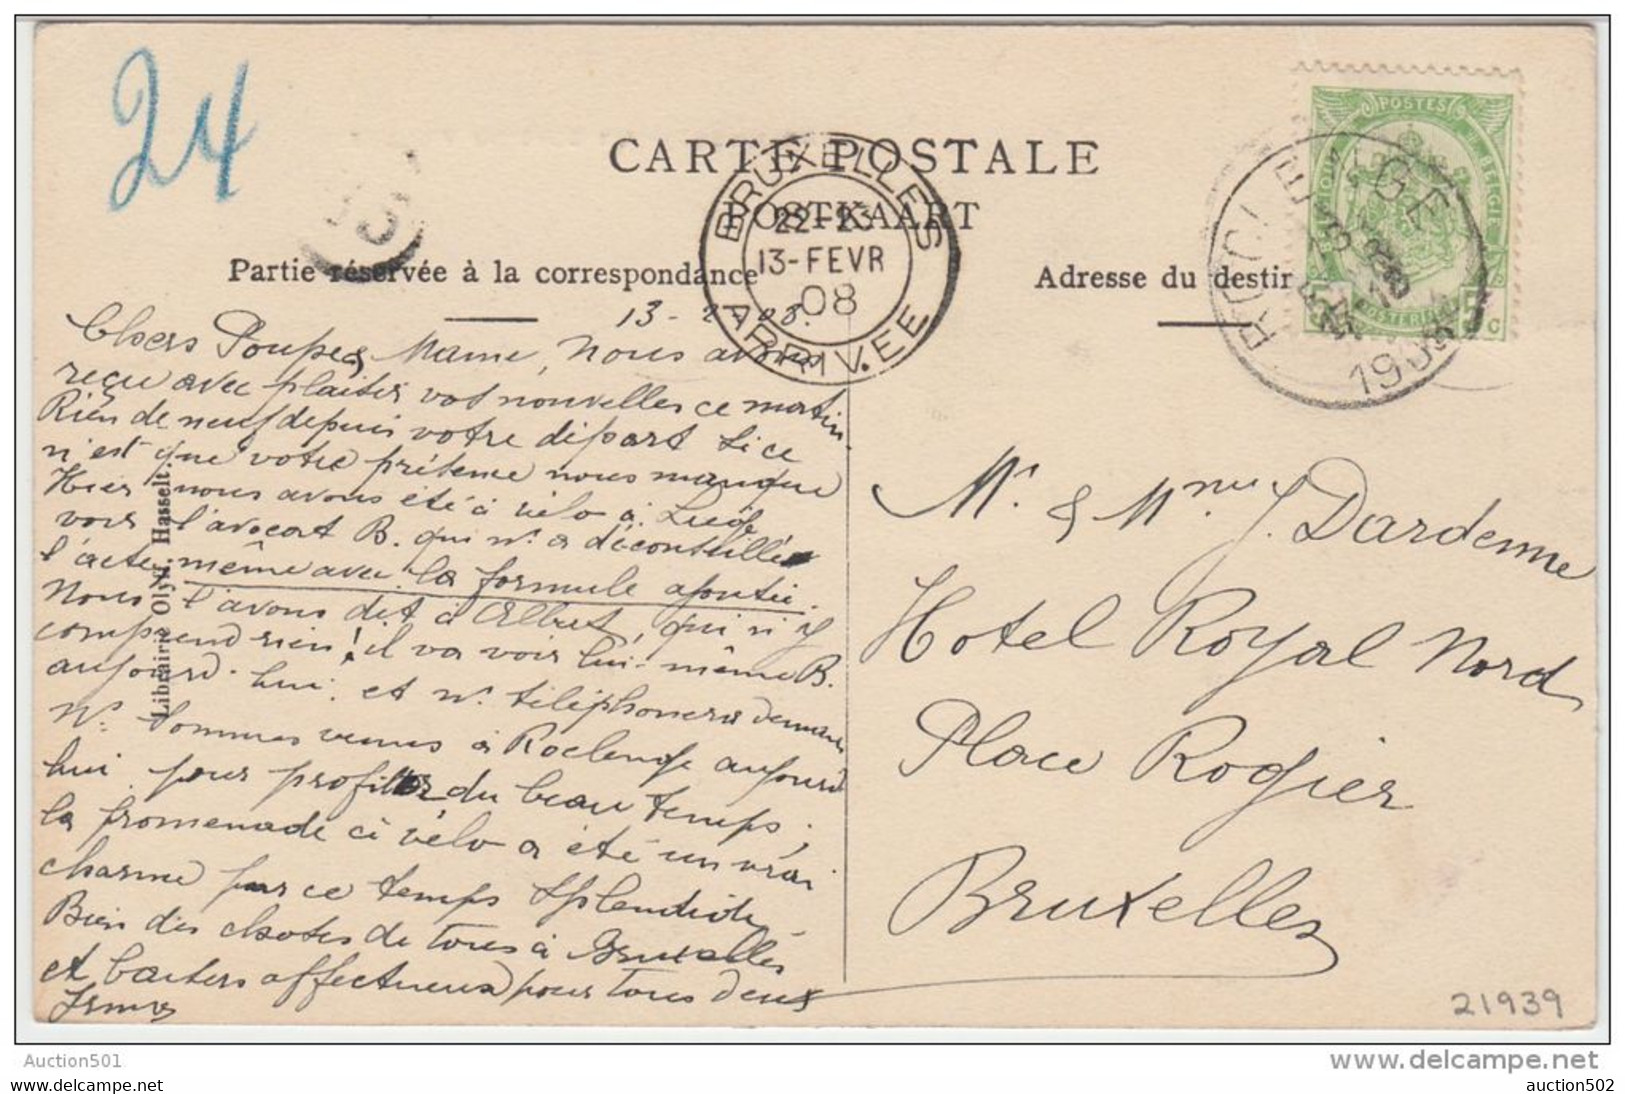 24
CARTE POSTALE
POSTKAART
Partie réservée à la correspondance
Adresse du destin
BRUXELLES
22-23
13-FEVR
08
ARRIVEE
POSTES
BELGIE
GE
13 - 2 - 08.
Chers Poupe & Mame, nous avons
reçu avec plaisir vos nouvelles ce matin.
Rien de neuf depuis votre départ si ce
n'est que votre présence nous manque
Hier nous avons été à vélo à Liège
voir l'avocat B. qui n. a déconseillé
l'acte même avec la formule ajoutée.
Nous l'avons dit à Albert, qui n'y
comprend rien! il va voir lui-même B.
aujourd'hui et n. téléphonera demain
N. sommes venus à Roclenge aujourd'
hui pour profiter du beau temps;
la promenade à vélo a été un vrai
charme par ce temps splendide
Bien des choses de tous à Bruxelles
et baisers affectueux pour tous deux
Irma
Librairie Olyff, Hasselt.
Mr. & Mme J. Dardenne
Hotel Royal Nord
Place Rogier
Bruxelles
21939
Auction501
www.delcampe.net
www.delcampe.net
auction502